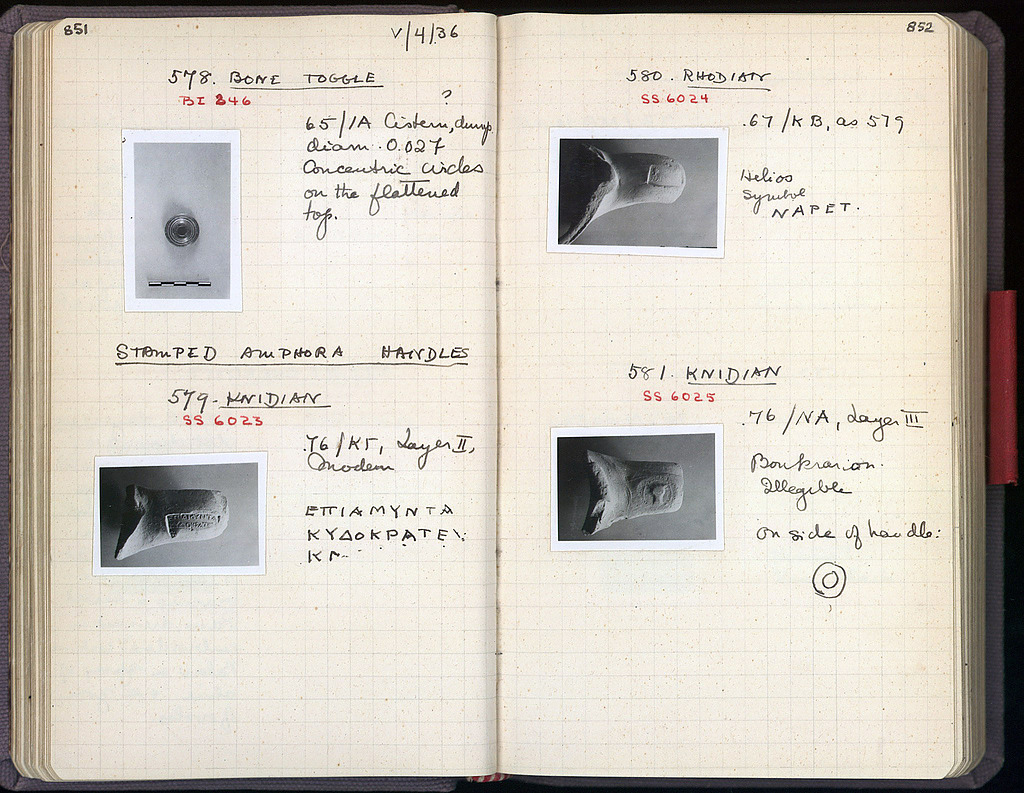 851
V/4/36
578. BONE TOGGLE
BI 846
?
65/1A Cistern, dump
diam. 0.027
Concentric circles
on the flattened
top.
STAMPED AMPHORA HANDLES
579. KNIDIAN
SS 6023
.76/KΓ, Layer II,
Modern
ΕΠΙΑΜΥΝΤΑ
ΚΥΔΟΚΡΑΤΕΥ
ΚΝ
852
580. RHODIAN
SS 6024
.67/KB, as 579
Helios
symbol
ΝΑΡΕΤ.
581. KNIDIAN
SS 6025
.76/NA, Layer III
Boukranion.
Illegible
on side of handle: